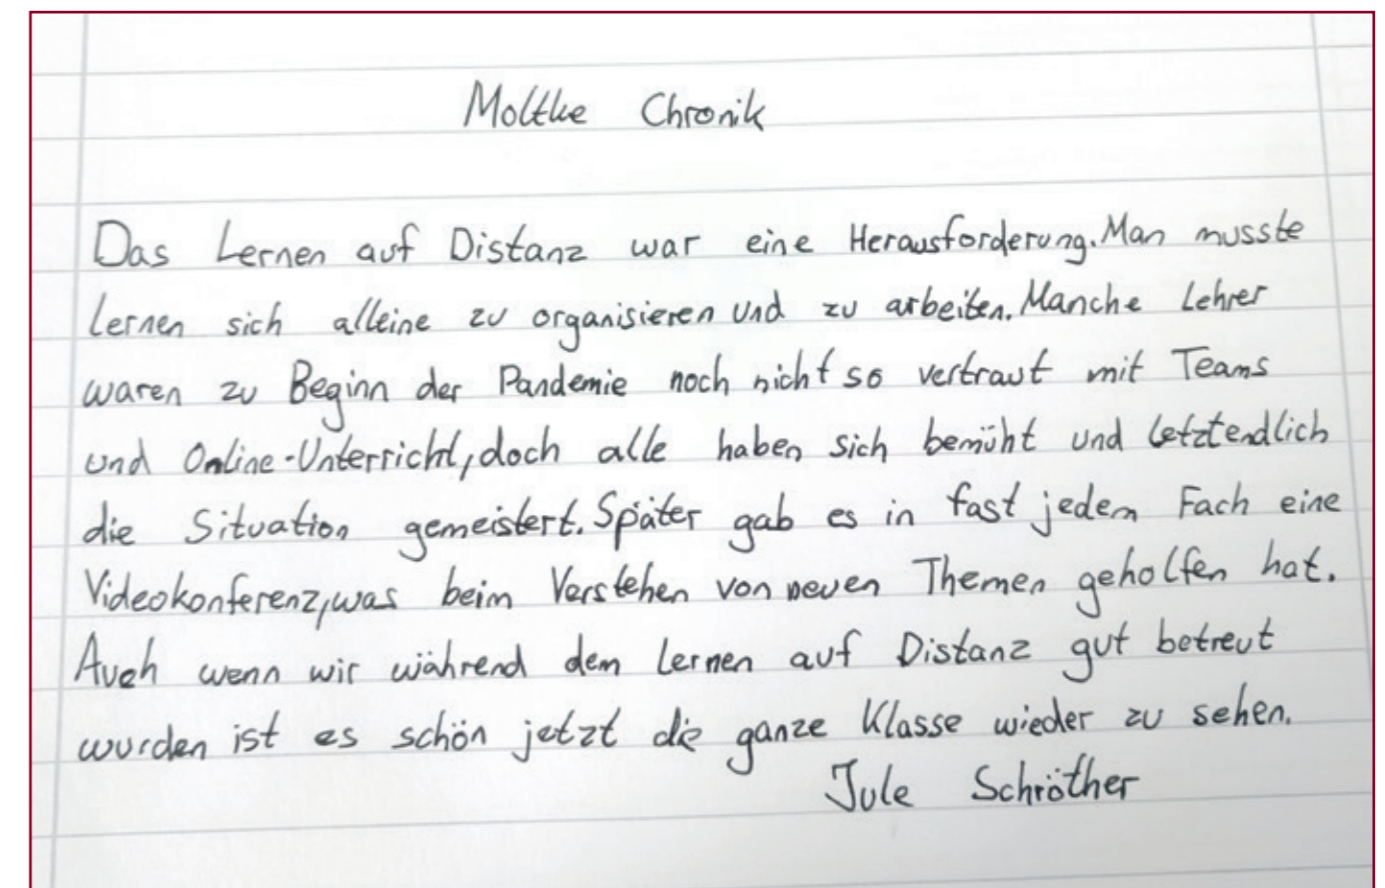 Moltke Chronik
Das Lernen auf Distanz war eine Herausforderung. Man musste
lernen sich alleine zu organisieren und zu arbeiten. Manche Lehrer
waren zu Beginn der Pandemie noch nicht so vertraut mit Teams
und Online-Unterricht, doch alle haben sich bemüht und letztendlich
die Situation gemeistert. Später gab es in fast jedem Fach eine
Videokonferenz, was beim Verstehen von neuen Themen geholfen hat.
Auch wenn wir während dem Lernen auf Distanz gut betreut
wurden ist es schön jetzt die ganze Klasse wieder zu sehen.
Jule Schröther